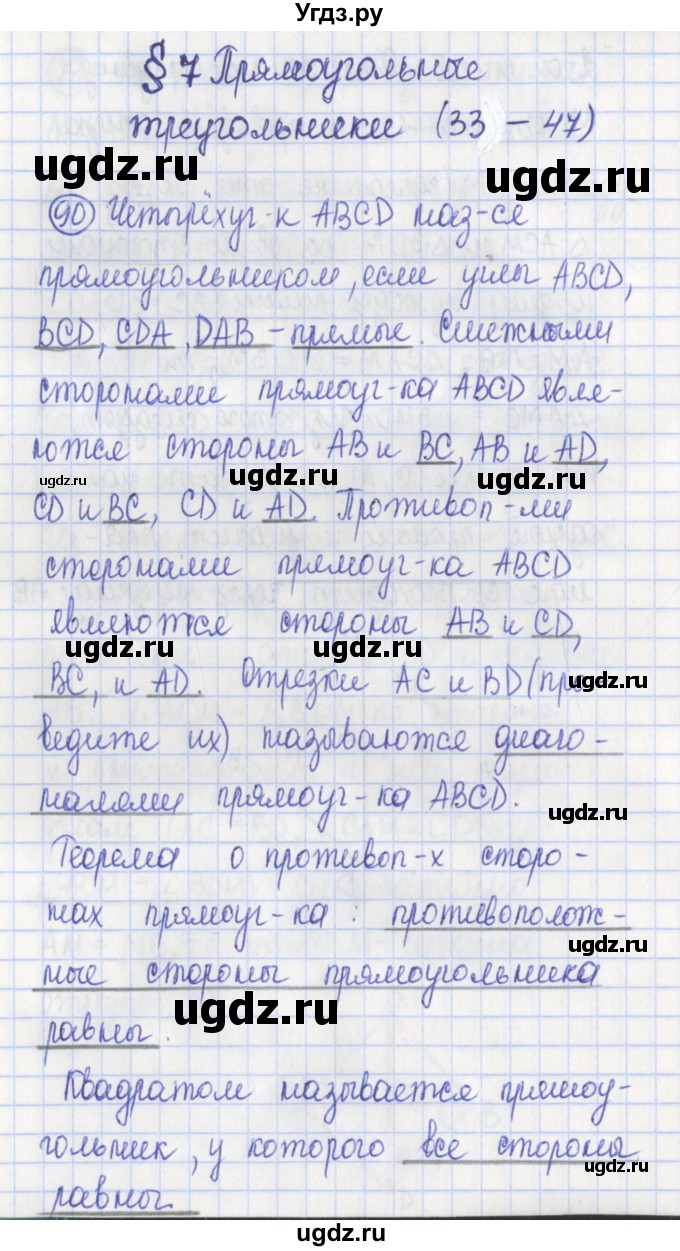 Угдз.ру
§ 7 Прямоугольные
треугольники (33 – 47)
ugdz.ru ugdz.ru
90 Четырёхуг-к ABCD наз-ся
прямоугольником, если углы ABCD,
ugdz.ru
BCD, CDA, DAB – прямые. Смежными
ugdz.ru ugdz.ru
сторонами прямоуг-ка ABCD явля-
ются стороны AB и BC, AB и AD,
ugdz.ru ugdz.ru ugdz.ru
CD и BC, CD и AD. Противоп-ми
сторонами прямоуг-ка ABCD
являются стороны AB и CD,
ugdz.ru ugdz.ru
BC, и AD. Отрезки AC и BD (про
ugdz.ru
ведите их) называются диаго-
налями прямоуг-ка ABCD.
ugdz.ru
Теорема о противоп-х сторо-
нах прямоуг-ка: противополож-
ugdz.ru
ные стороны прямоугольника
ugdz.ru
равны.
Квадратом называется прямоу-
гольник, у которого все стороны
ugdz.ru
равны.
Угдз.ру